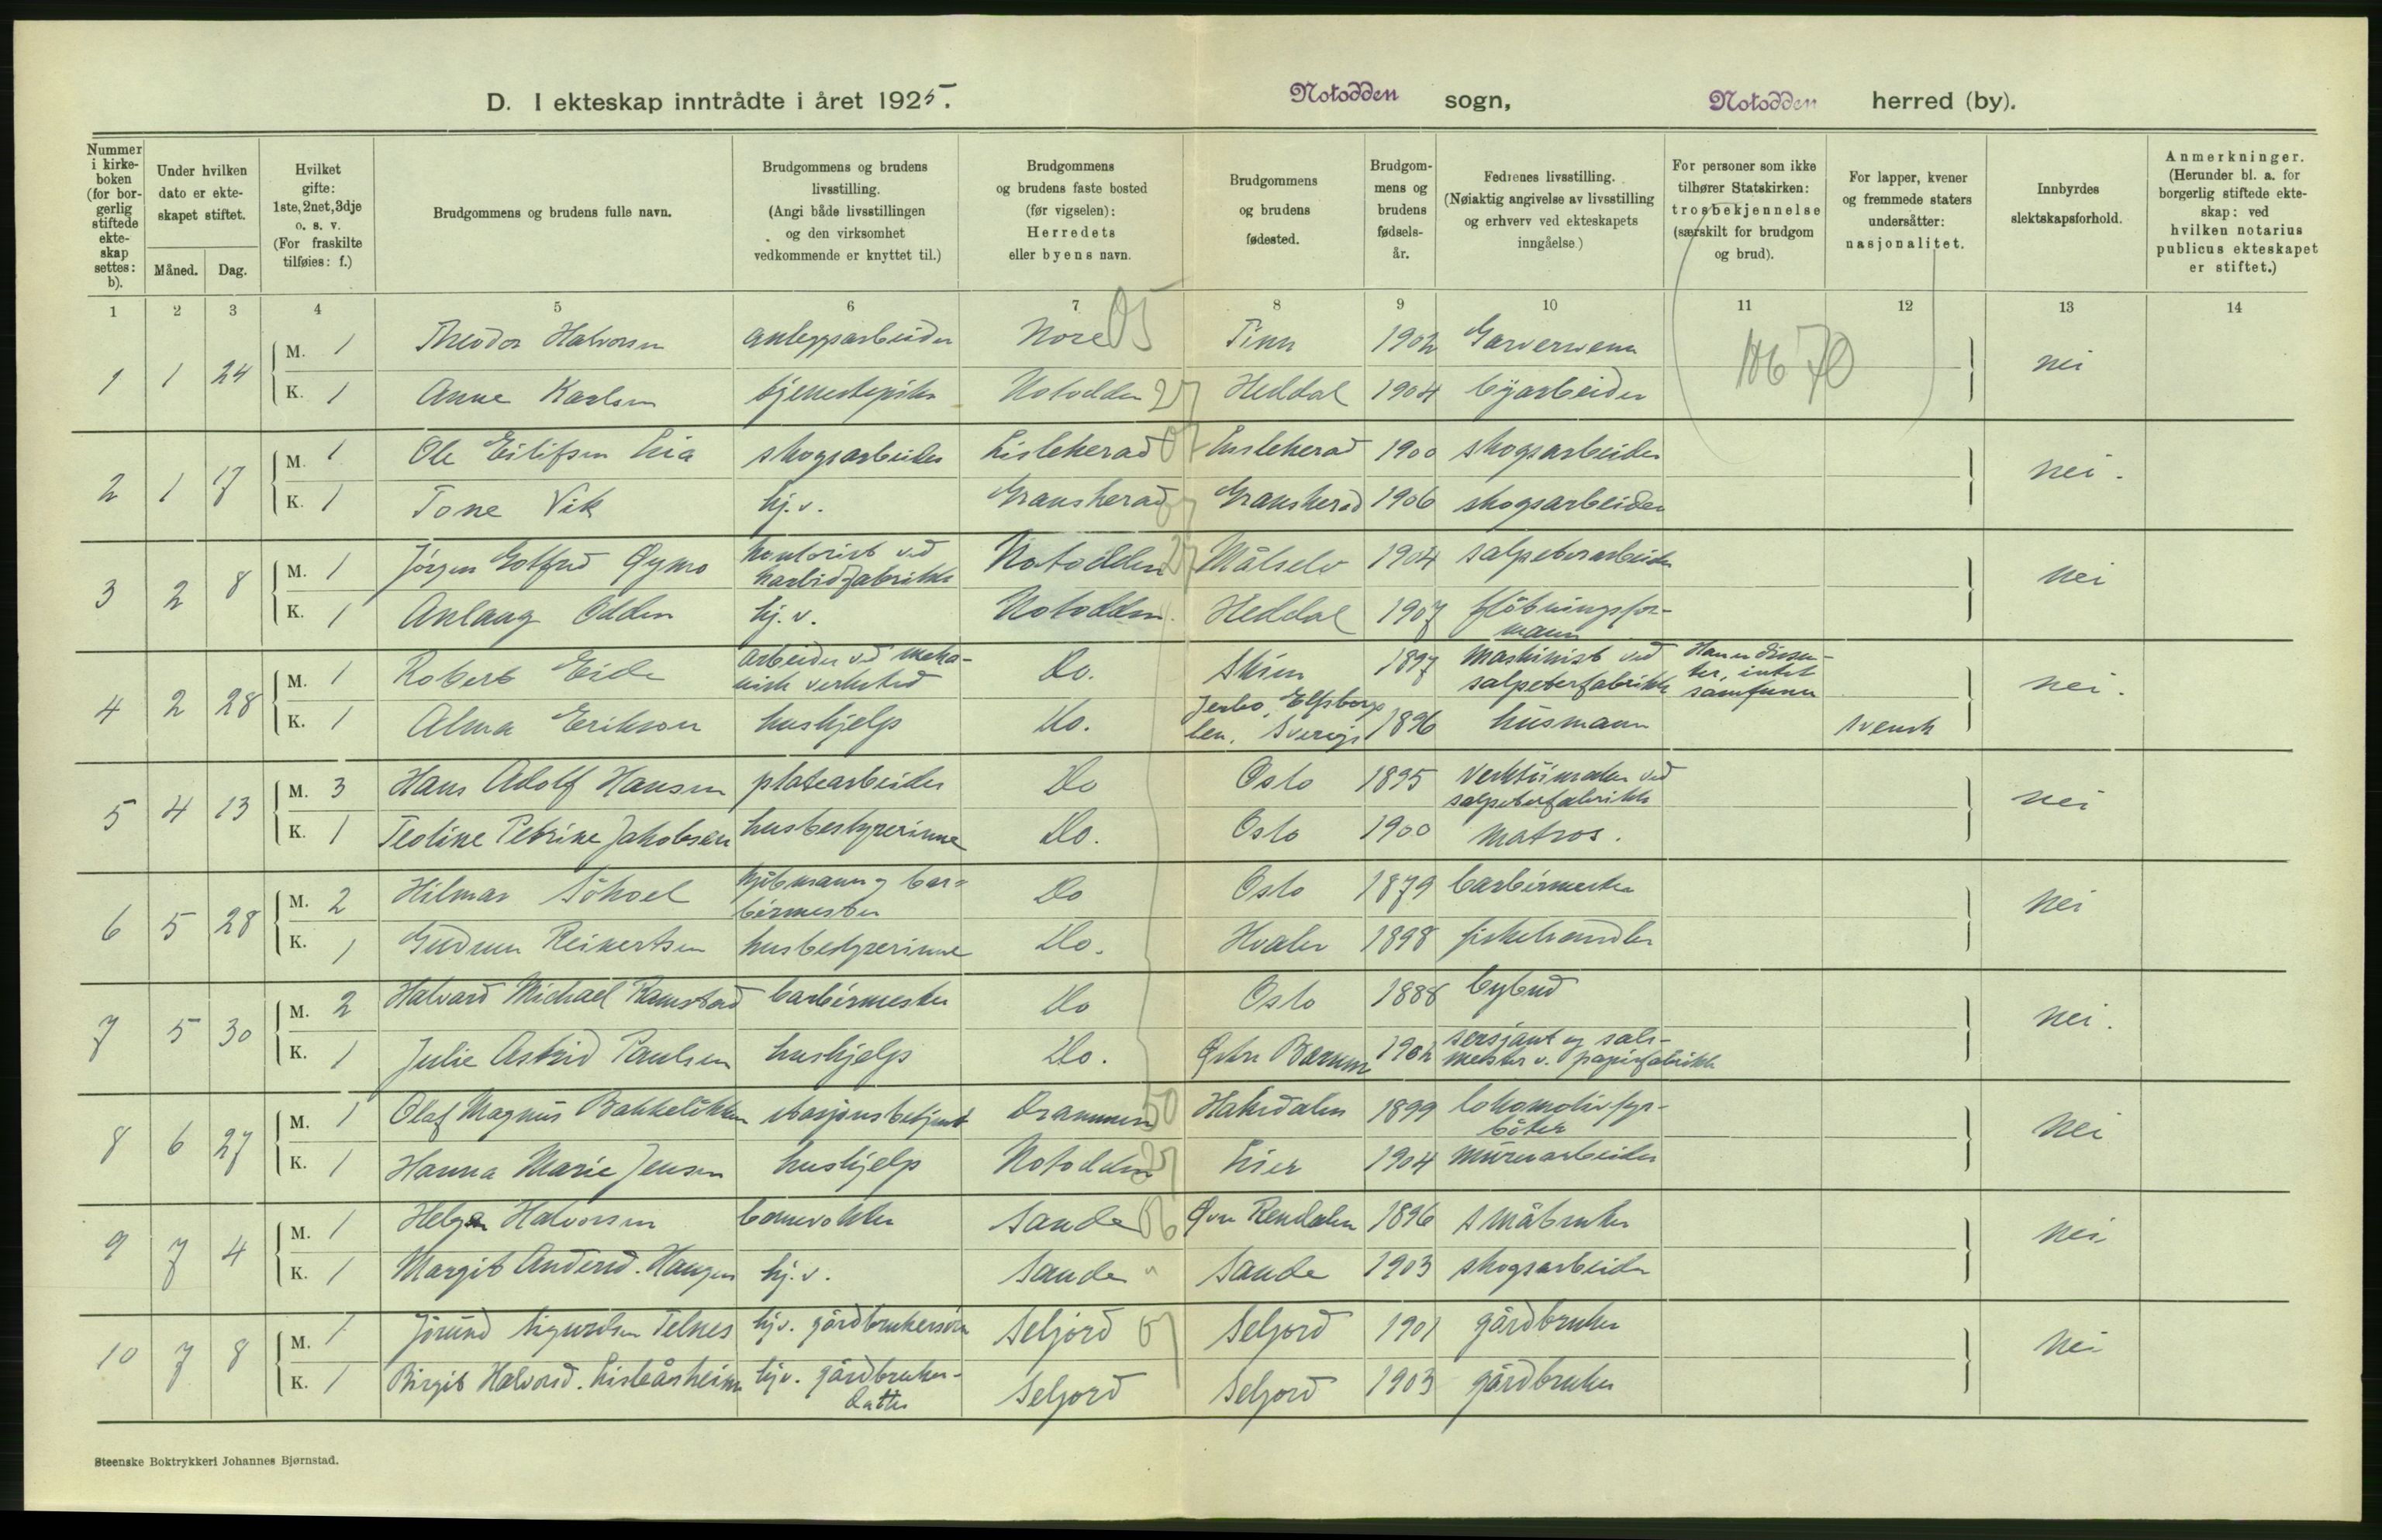 D. I ekteskap inntrådte i året 1925. Notodden sogn, Notodden herred (by).
Nummer i kirkeboken (for borgerlig stiftede ekteskap settes: b).
Under hvilken dato er ekteskapet stiftet.
Måned. Dag.
Hvilket gifte: 1ste, 2net, 3dje o. s. v. (For fraskilte tilføies: f.)
Brudgommens og brudens fulle navn.
Brudgommens og brudens livsstilling. (Angi både livsstillingen og den virksomhet vedkommende er knyttet til.)
Brudgommens og brudens faste bosted (før vigselen): Herredets eller byens navn.
Brudgommens og brudens fødested.
Brudgommens og brudens fødselsår.
Fedrenes livsstilling. (Nøiaktig angivelse av livsstilling og erhverv ved ekteskapets inngåelse.)
For personer som ikke tilhører Statskirken: trosbekjennelse (særskilt for brudgom og brud).
For lapper, kvener og fremmede staters undersåtter: nasjonalitet.
Innbyrdes slektskapsforhold.
Anmerkninger. (Herunder bl. a. for borgerlig stiftede ekteskap: ved hvilken notarius publicus ekteskapet er stiftet.)
1 2 3 4 5 6 7 8 9 10 11 12 13 14
1 1 24 M. 1 Theodor Halvorsen anleggsarbeider Nore 05 Tinn 1902 Garversvenn nei
K. 1 Anne Karlsen tjenestepike Notodden 27 Heddal 1904 byarbeider
2 1 17 M. 1 Ole Eilifsen Lia skogsarbeider Lisleherad 07 Lisleherad 1900 skogsarbeider nei.
K. 1 Tone Vik hj. v. Gransherad Gransherad 1906 skogsarbeider
3 2 8 M. 1 Jörgen Gotfred Øymo kontorist ved karbidfabrikk Notodden 27 Målselv 1904 salpeterarbeider nei
K. 1 Anlaug Odden hj. v. Notodden Heddal 1907 flötningsformann
4 2 28 M. 1 Robert Eide arbeider ved mekanisk verksted Do. Skien 1897 maskinist ved salpeterfabrikk Han er dissenter, intet samfunn nei.
K. 1 Alma Erikson hushjelp Do. Jerbo, Elfsborgs len, Sverige 1896 husmann svensk
5 4 13 M. 3 Hans Adolf Hansen platearbeider Do Oslo 1895 Verktöimaker ved salpeterfabrikk nei
K. 1 Teoline Petrine Jakobsen husbestyrerinne Do. Oslo 1900 matros.
6 5 28 M. 2 Hilmar Söhoel kjöbmann og barbermester Do Oslo 1879 barbermester nei
K. 1 Gudrun Reinertsen husbestyrerinne Do. Hvaler 1898 fiskehandler
7 5 30 M. 2 Halvard Michael Ramstad barbérmester Do Oslo 1888 bybud nei.
K. 1 Julie Astrid Paulsen hushjelp Do. Östre Bærum 1902 sersjant og salmester v. papirfabrikk
8 6 27 M. 1 Olaf Magnus Bakkelökken stasjonsbetjent Drammen 50 Hakedalen 1899 lokomotivfyrböter nei
K. 1 Hanna Marie Jensen hushjelp Notodden 27 Lier 1904 murerarbeider
9 7 4 M. 1 Helge Halvorsen Sande Øvre Rendalen 1896 småbruker nei
K. 1 Margit Andersd. Haugen hj. v. Sande " Sande 1903 skogsarbeider
10 7 8 M. 1 Jörund Sigurdsen Telnes hj v. gårdbrukersön Seljord 07 Seljord 1901 gårdbruker nei
K. 1 Birgit Halvorsd. Lisleåsheim hj v. gårdbrukerdatter Seljord Seljord 1903 gårdbruker
Steenske Boktrykkeri Johannes Bjørnstad.